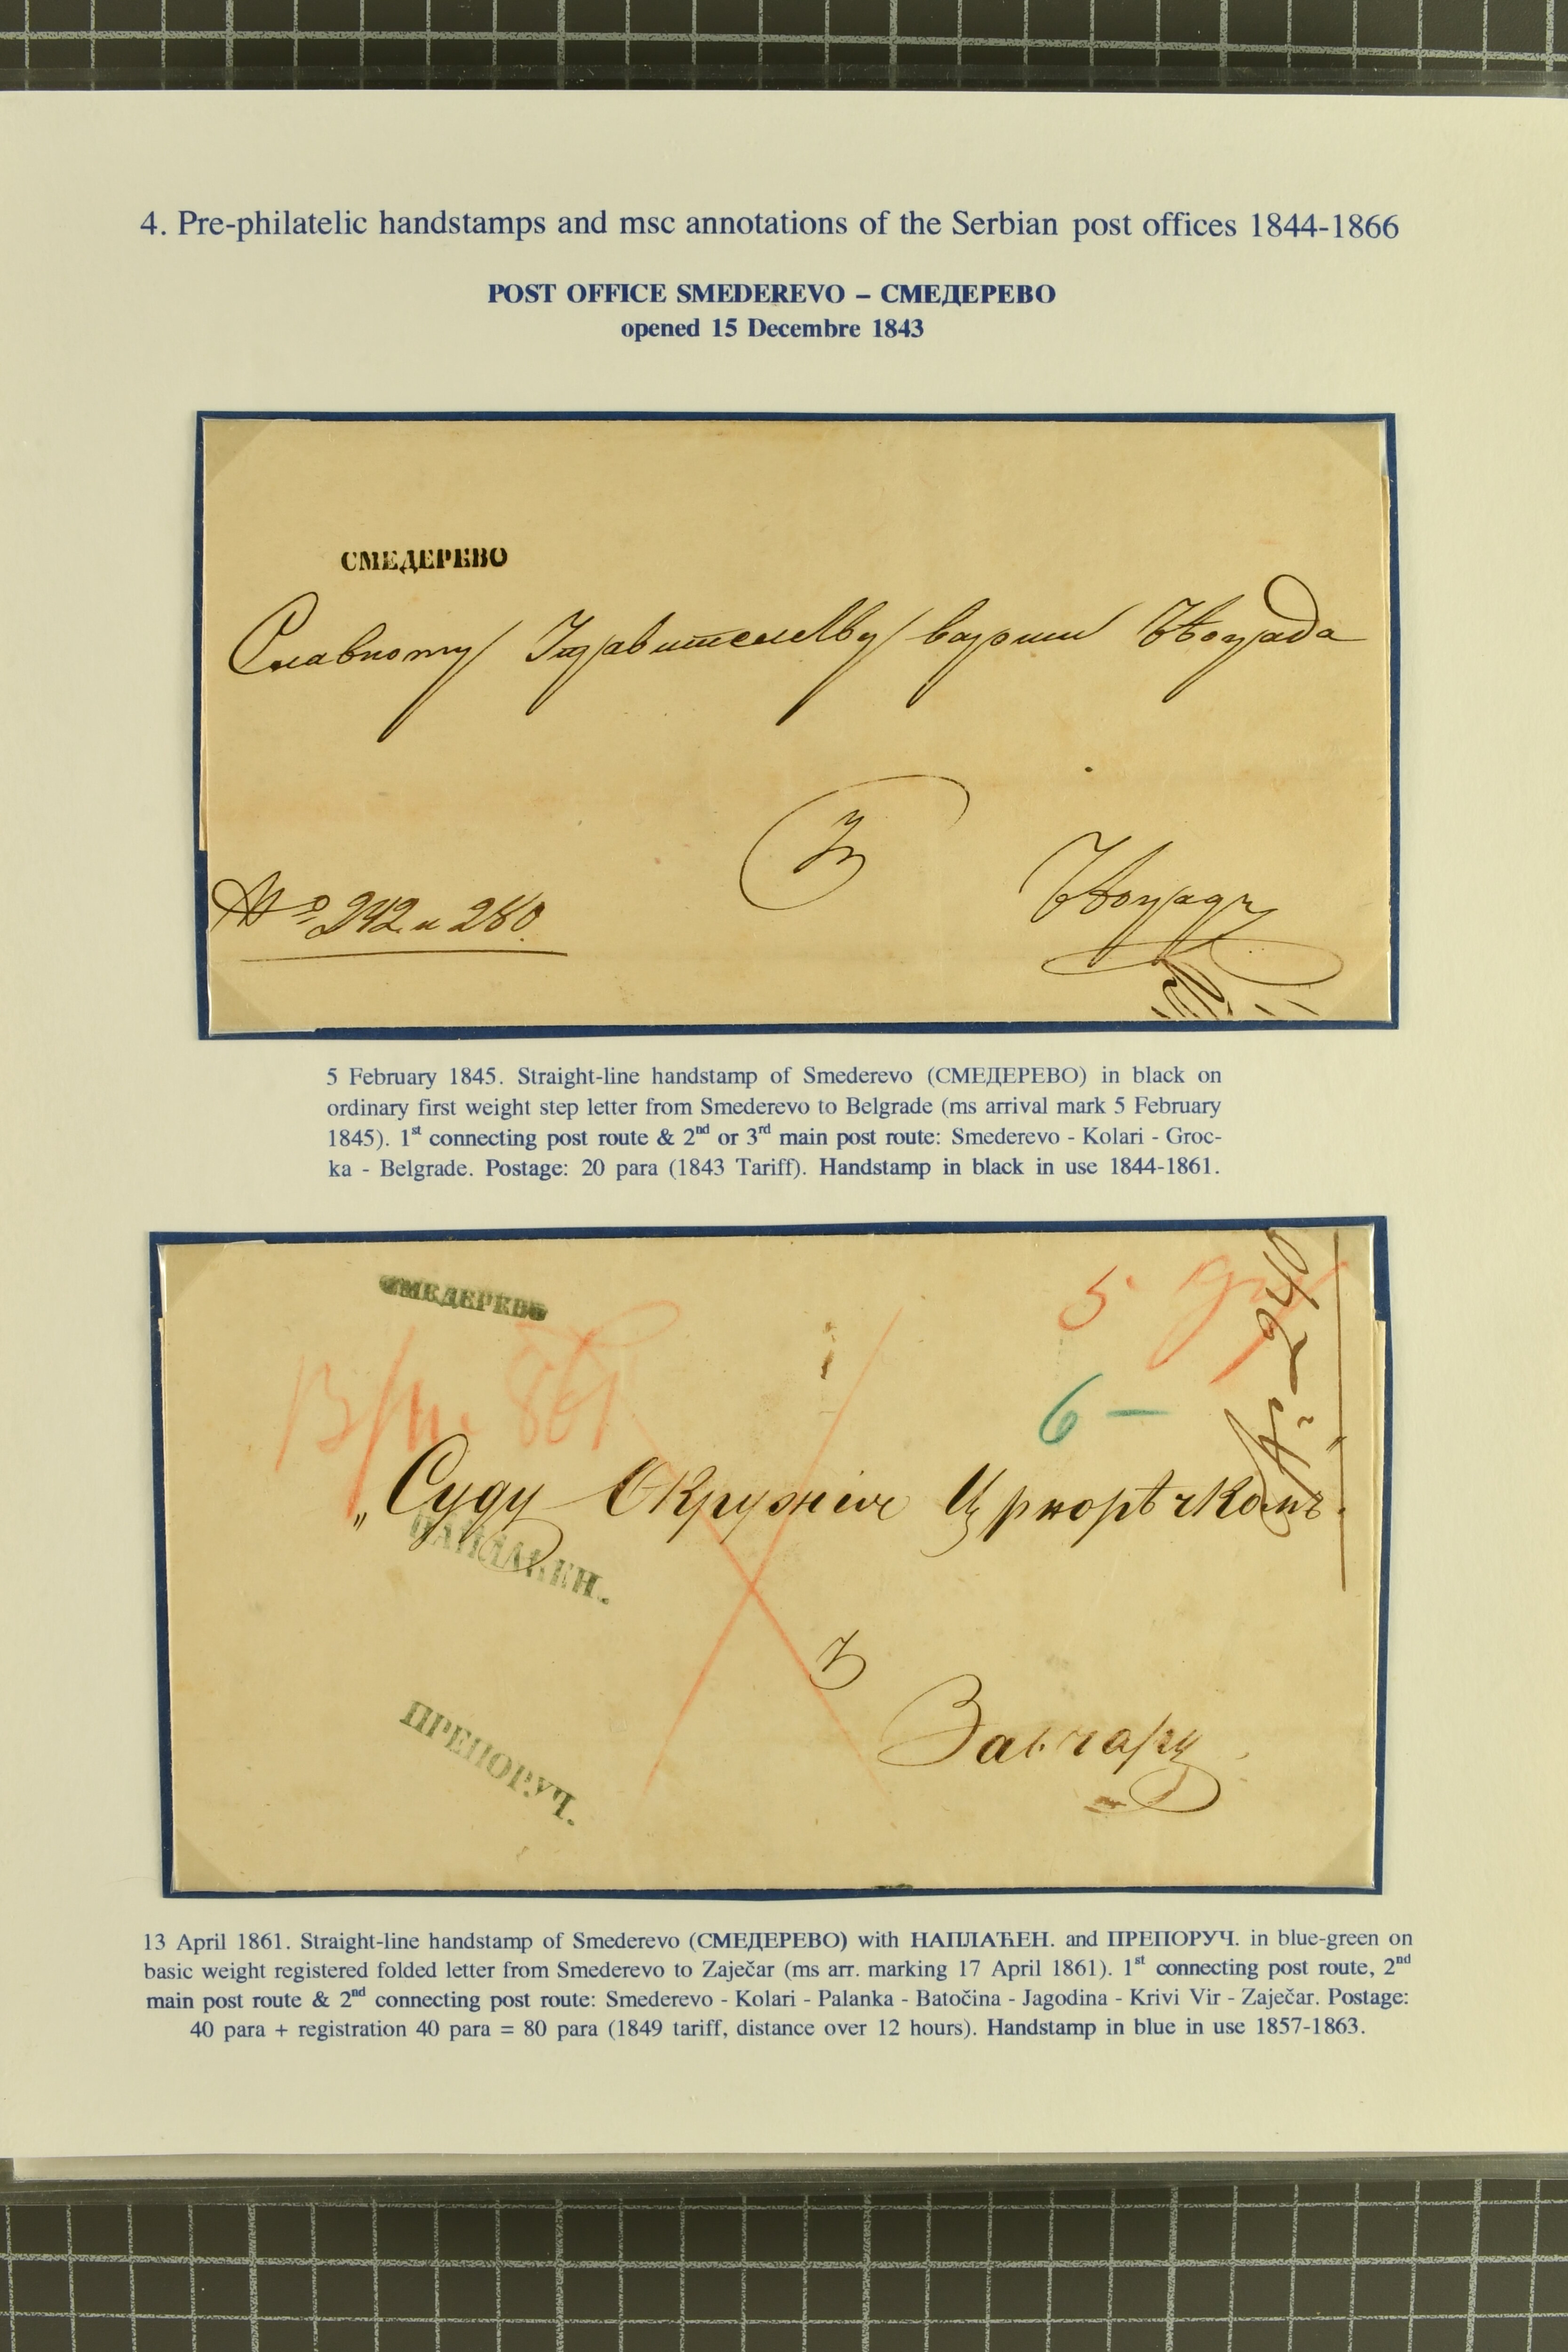 4. Pre-philatelic handstamps and msc annotations of the Serbian post offices 1844-1866
POST OFFICE SMEDEREVO – СМЕДЕРЕВО
opened 15 Decembre 1843
СМЕДЕРЕВО
Славному
No 242 и 280.
5 February 1845. Straight-line handstamp of Smederevo (СМЕДЕРЕВО) in black on
ordinary first weight step letter from Smederevo to Belgrade (ms arrival mark 5 February
1845). 1st connecting post route & 2nd or 3rd main post route: Smederevo - Kolari - Groc-
ka - Belgrade. Postage: 20 para (1843 Tariff). Handstamp in black in use 1844-1861.
СМЕДЕРЕВО
5
No 240
861
6 –
„Суду Окружія Црнорѣчкомъ.
НАПЛАЋЕН.
ПРЕПОРУЧ.
Заичару
13 April 1861. Straight-line handstamp of Smederevo (СМЕДЕРЕВО) with НАПЛАЋЕН. and ПРЕПОРУЧ. in blue-green on
basic weight registered folded letter from Smederevo to Zaječar (ms arr. marking 17 April 1861). 1st connecting post route, 2nd
main post route & 2nd connecting post route: Smederevo - Kolari - Palanka - Batočina - Jagodina - Krivi Vir - Zaječar. Postage:
40 para + registration 40 para = 80 para (1849 tariff, distance over 12 hours). Handstamp in blue in use 1857-1863.